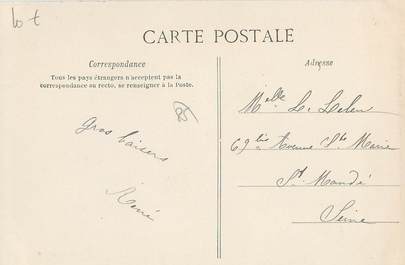 lot
CARTE POSTALE
Correspondance
Tous les pays étrangers n'acceptent pas la
correspondance au recto, se renseigner à la Poste.
85
Gros baisers
René
Adresse
Melle L.
69bis Avenue Ste Marie
St Mandé
Seine